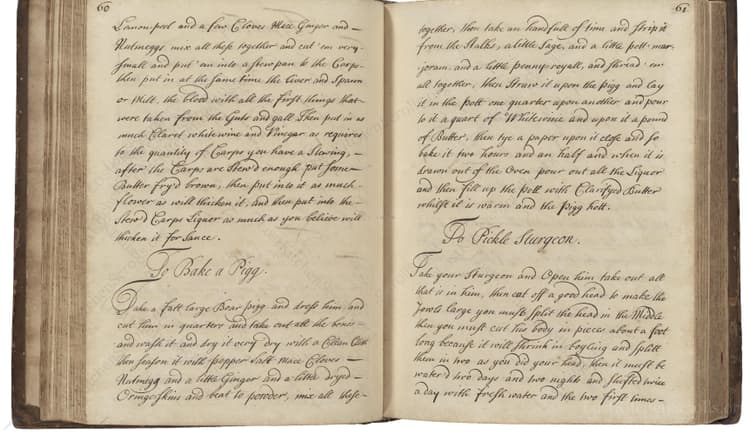 60
Lemon peel and a few Cloves Mace Ginger and
Nutmeggs mix all these together and cut 'em very
small and put 'em into a stewpan to the Carps
then put in at the same time the Liver and Spawn
or Melt, the blood with all the first things that
were taken from the Guts and gall. Then put in as
much Claret whitewine and Vinegar as requires
to the quantity of Carps you have a Stewing,
after the Carps are Stew'd enough put some
Butter fry'd brown, then put into it as much
flower as will thicken it, and then put into the
Stew'd Carps Liquor as much as you believe will
thicken it for Sauce.
To Bake a Pigg.
Take a fatt large Boar pigg and dress him and
cut him in quarters and take out all the bones
and wash it and dry it very dry with a Clean Cloth
then season it with pepper Salt Mace Cloves
Nutmegg and a little Ginger and a little dryed
Oringe Skins and beat to powder, mix all these
61
together, then take an handfull of time and Strip it
from the Stalks, a little Sage, and a little pott mar
joram, and a little penny royall, and shread 'em
all together, then straw it upon the pigg and lay
it in the pott one quarter upon another and pour
to it a quart of Whitewine and upon it a pound
of Butter, then tye a paper upon it close and so
bake it two hours and an half and when it is
drawn out of the Oven pour out all the Liquor
and then fill up the pott with Claryfyed Butter
whilst it is warm and the pigg hott.
To Pickle Sturgeon.
Take your Sturgeon and Open him take out all
that is in him, then cut off a good head to make the
Jowls large you must split the head in the Middle
then you must cut his body in pieces about a foot
long because it will shrink in boyling and splitt
them in two as you did your head, then it must be
water'd two days and two nights and shifted twice
a day with fresh water and the two first times